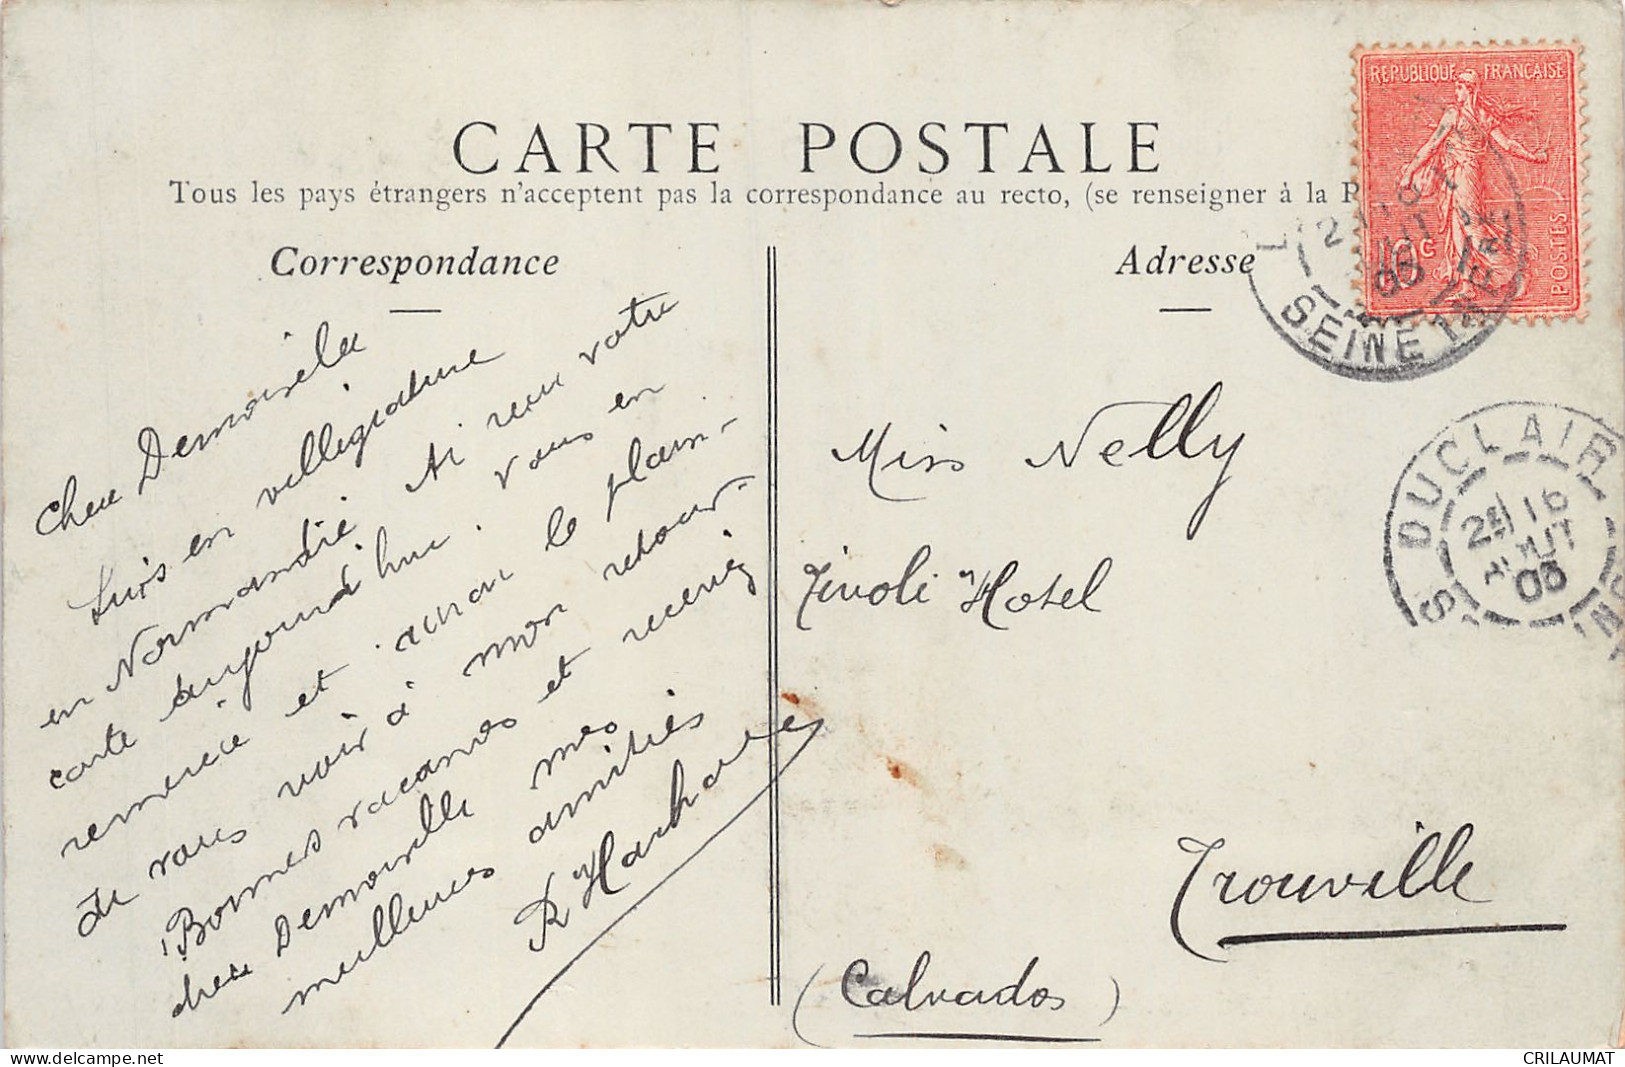 CARTE POSTALE
Tous les pays étrangers n'acceptent pas la correspondance au recto, (se renseigner à la P
Correspondance
Adresse
REPUBLIQUE FRANÇAISE
10c
POSTES
SEINE INFER
DUCLAIR
2E 16
AOUT
06
Chère Demoiselle
Suis en villégiature
en Normandie Ai reçu votre
carte aujourd'hui. Vous en
remercie et aurai le plaisir
de vous voir à mon retour.
Bonnes vacances et recevez
chère Demoiselle mes
meilleures amitiés
Miss Nelly
Tivoli Hotel
Trouville
(Calvados)
delcampe.net
CRILAUMAT